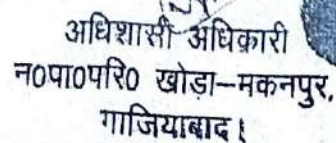 अधिशासी अधिकारी
न०पा०परि० खोड़ा–मकनपुर,
गाजियाबाद।